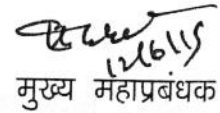 12/6/15
मुख्य महाप्रबंधक